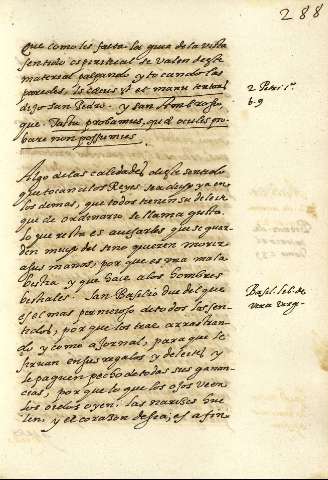 288
Que como les falta la guia de la vista
sentido espiritual se valen deste
material palpando, y tocando las
paredes,
2 Petri 1.
6. 9
dijo San Pedro. y san Ambrosio,
que. Tactu probamus, quæ oculis pro-
bare non possumus.
Algo de las calidades deste sentido
que toca a los Reyes, sea dicho ya en
los demas, que todos tienen su deleite
que de ordinario se llama gusto.
lo que resta es avisarles que se guar-
den mucho del sino quieren morir
a sus manos, por que es una mala
bestia y que hace a los hombres
bestiales. San Basilio dice del que
Basil. lib. de
vera virgi-
es el mas pernicioso de todos los sen-
tidos, por que los trae arrastran-
do y como a jornal, para que le
sirvan en sus regalos y deleites, y
le paguen pecho de todas sus ganan-
cias, por que lo que los ojos veen
los oidos oyen: las narices hue-
len: y el corazon desea; es a fin